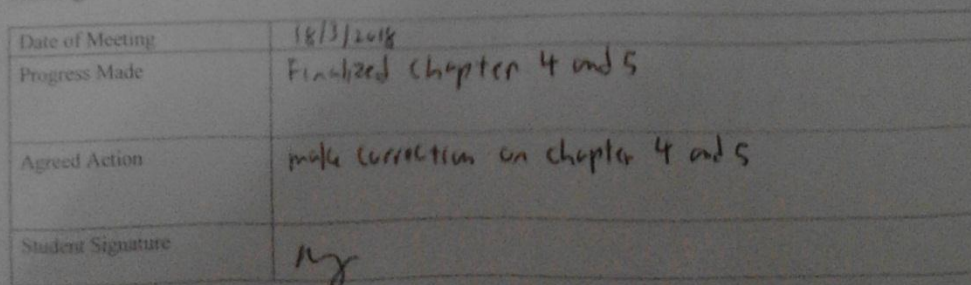 Date of Meeting 18/3/2018
Progress Made Finalized Chapter 4 and 5
Agreed Action make correction on chapter 4 and 5
Student Signature